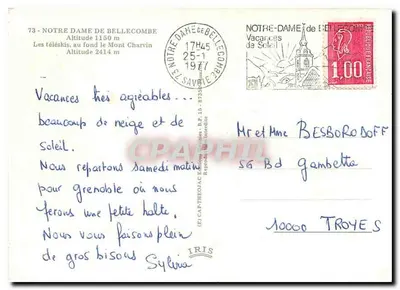 73 - NOTRE DAME DE BELLECOMBE
Altitude 1150 m
Les téléskis, au fond le Mont Charvin
Altitude 2414 m
73 NOTRE-DAME DE BELLECOMBE
17H45
25-1
1977
SAVOIE
NOTRE-DAME de BELLECOMBE
Vacances
de Soleil
1.00
Vacances très agréables...
beaucoup de neige et de
soleil.
Nous repartons samedi matin
pour grenoble où nous
ferons une petite halte.
Nous vous faisons plein
de gros bisous
Sylvia
CAP-THEOJAC
IRIS
Mr et Mme BESBORODOFF
56 Bd Gambetta
10000 TROYES
CPAPHIL